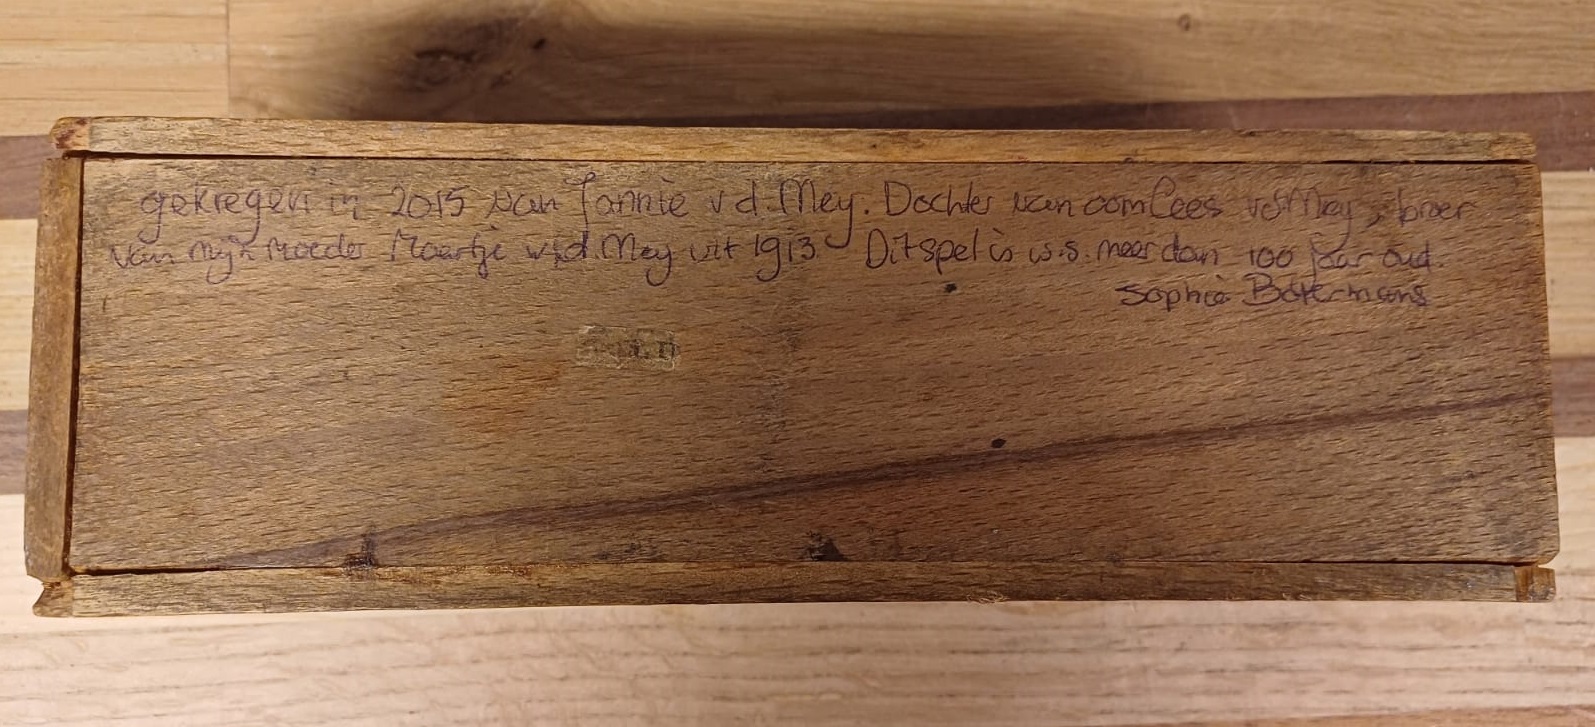 gekregen in 2015 van Jannie v d. Mey. Dochter van oom Cees vd Mey, broer
van mijn Moeder Maartje v.d. Mey uit 1913. Dit spel is w.s. meer dan 100 jaar oud.
Sophie Botermans